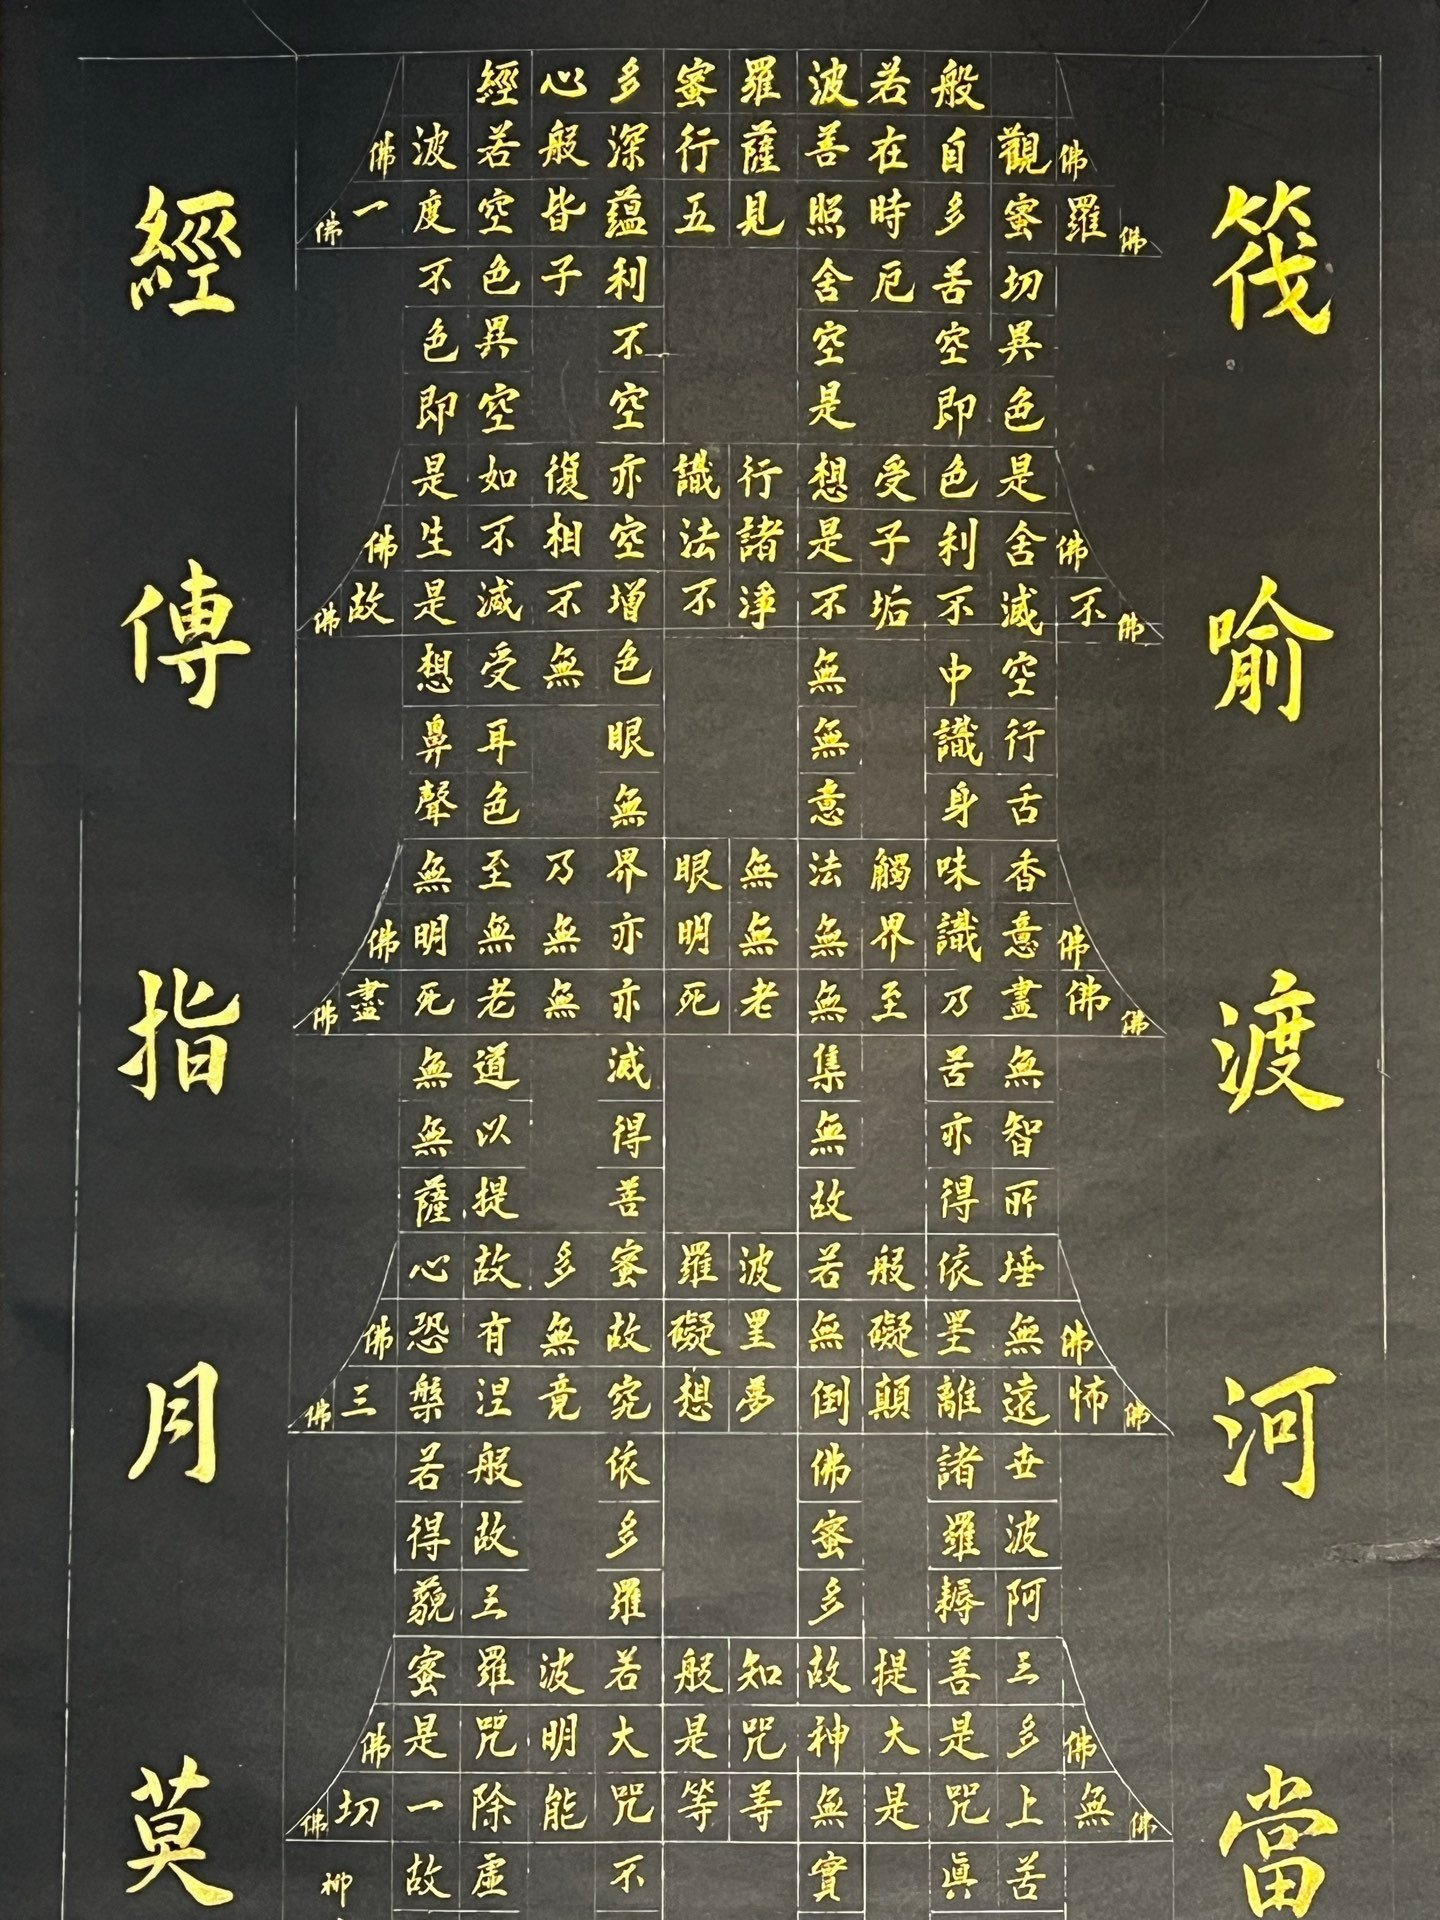 筏喻渡河當
般若波羅蜜多心經
佛觀自在菩薩行深般若波佛
佛羅蜜多時照見五蘊皆空度一佛
切苦厄舍利子色不
異空空不異色
色即是空空即
是色受想行識亦復如是
佛舍利子是諸法空相不生佛
佛不滅不垢不淨不增不減是故佛
空中無色無受想
行識無眼耳鼻
舌身意無色聲
香味觸法無眼界乃至無
佛意識界無無明亦無無明佛
佛佛盡乃至無老死亦無老死盡佛
無苦集滅道無
智亦無得以無
所得故菩提薩
埵依般若波羅蜜多故心
佛無罣礙無罣礙故無有恐佛
佛怖遠離顛倒夢想究竟涅槃三佛
世諸佛依般若
波羅蜜多故得
阿耨多羅三藐
三菩提故知般若波羅蜜
佛多是大神咒是大明咒是佛
佛無上咒是無等等咒能除一切佛
苦真實不虛故
經傳指月莫